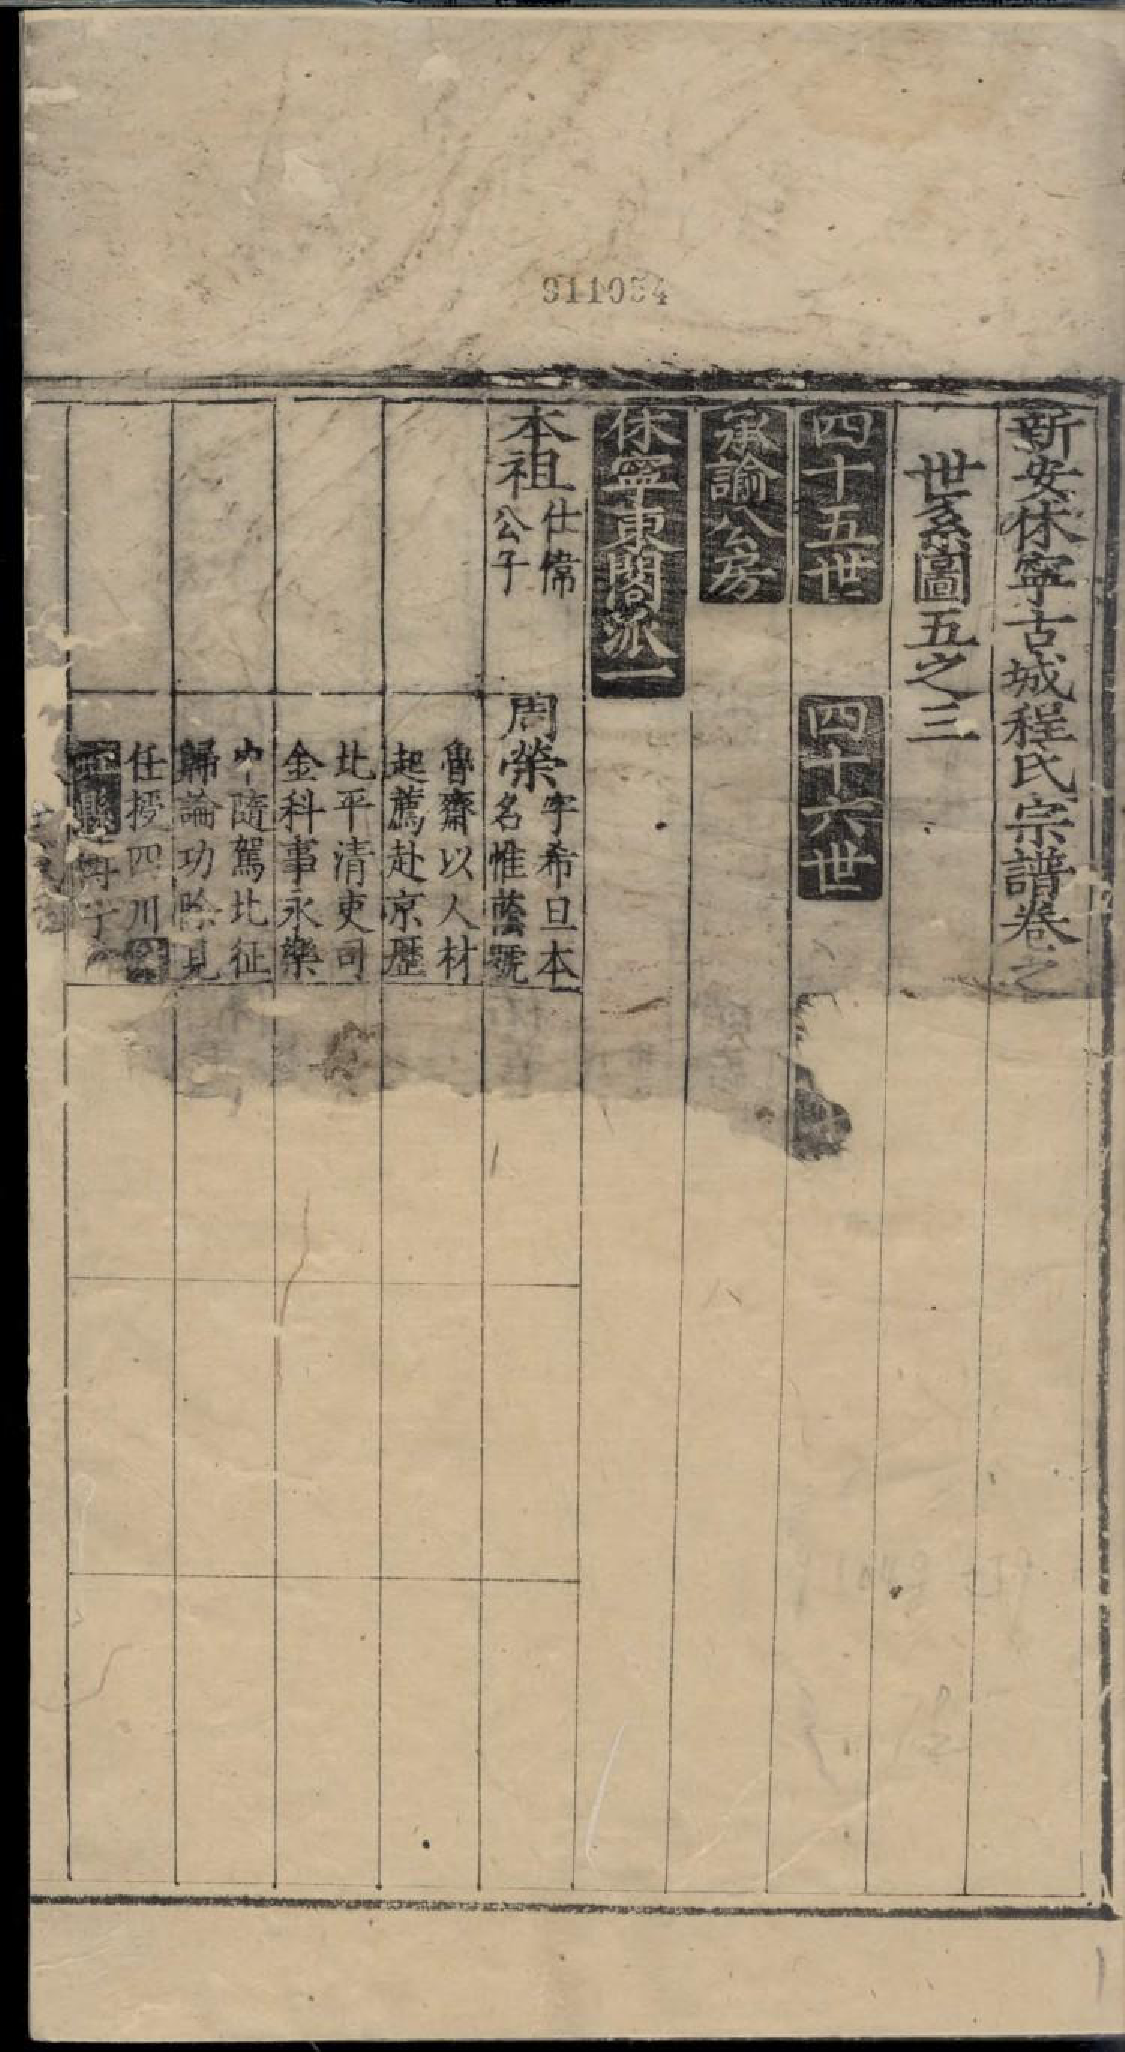 911054
新安休寧古城程氏宗譜卷之
世系圖五之三
四十五世 四十六世
承諭公房
休寧東閣派一
本祖 仕偉
公子
周榮 字希旦本
名惟蓥號
魯齋以人材
起薦赴京歷
北平清吏司
金科事永樂
中隨駕北征
歸論功除見
任授四川
縣